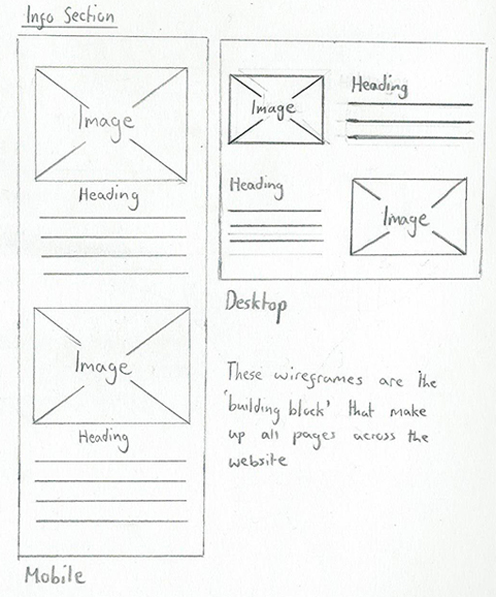 Info Section
Image
Heading
Image
Heading
Mobile
Image
Heading
Heading
Image
Desktop
These wireframes are the
'building block' that make
up all pages across the
website